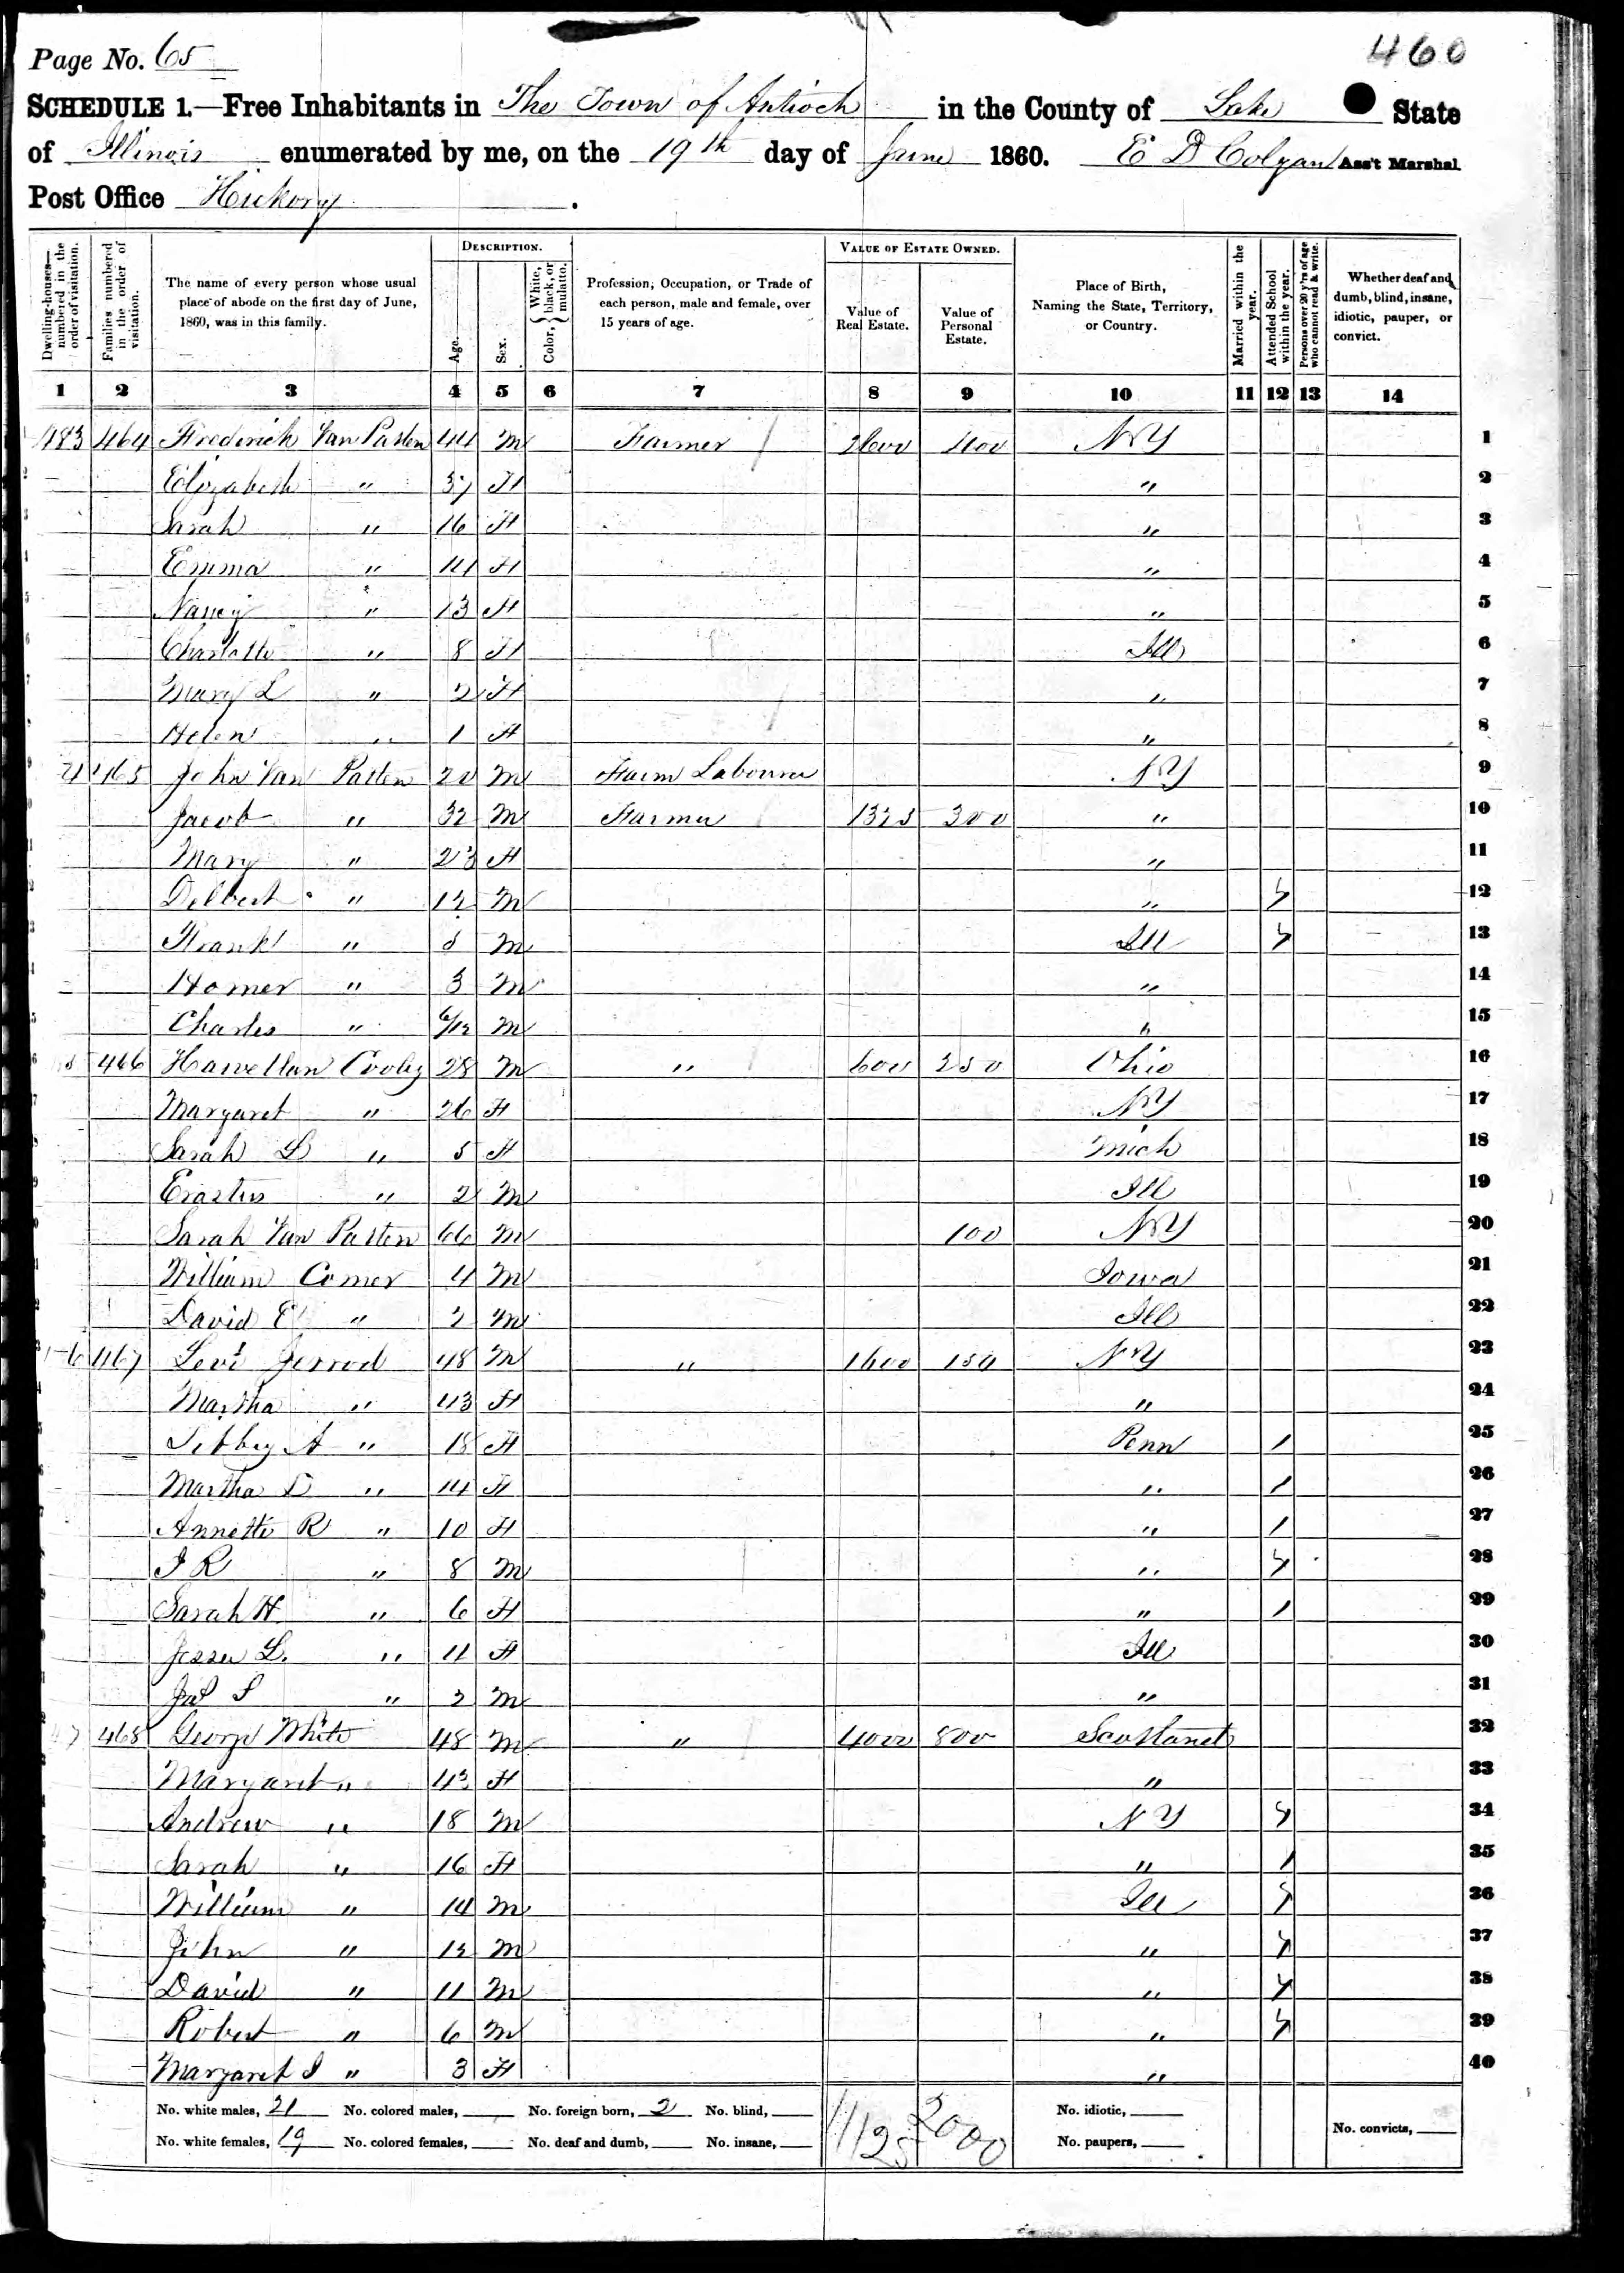 460
Page No. 65
SCHEDULE 1.—Free Inhabitants in The Town of Antioch in the County of Lake State
of Illinois enumerated by me, on the 19th day of June 1860. E D Colgan Ass't Marshal
Post Office Hickory.
DESCRIPTION. VALUE OF ESTATE OWNED.
Dwelling-houses—numbered in the order of visitation. Families numbered in the order of visitation. The name of every person whose usual place of abode on the first day of June, 1860, was in this family. Age. Sex. Color, { White, black, or mulatto. Profession, Occupation, or Trade of each person, male and female, over 15 years of age. Value of Real Estate. Value of Personal Estate. Place of Birth, Naming the State, Territory, or Country. Married within the year. Attended School within the year. Persons over 20 y'rs of age who cannot read & write. Whether deaf and dumb, blind, insane, idiotic, pauper, or convict.
1 2 3 4 5 6 7 8 9 10 11 12 13 14
483 464 Frederick Van Patten 44 M Farmer 400 NY 1
Elizabeth " 37 F " 2
Sarah " 16 F " 3
Emma " 14 F " 4
Nancy " 13 F " 5
Charlotte " 8 F Ill 6
Mary L " 2 F " 7
Helen " 1 F " 8
4 465 John Van Patten 20 M Farm Labourer NY 9
Jacob " 32 M Farmer 1325 300 " 10
Mary " 23 F " 11
Delbert " 12 M " 12
Frank " M Ill 13
Homer " 3 M " 14
Charles " 6/12 M " 15
466 Cooley 28 M " 600 250 Ohio 16
Margaret " 26 F NY 17
Sarah L " 5 F Mich 18
Erastus " 2 M Ill 19
Sarah Van Patten 66 M 100 NY 20
William Comer 4 M Iowa 21
David E " 2 M Ill 22
6 467 Levi Jerrod 48 M " 1600 150 NY 23
Martha " 43 F " 24
A " 18 F Penn / 25
Martha D " 14 F " / 26
Annette R " 10 F " / 27
R " 8 M " 28
Sarah H. " 6 F " / 29
Jesse L. " 4 F Ill 30
" 2 M " 31
7 468 George White 48 M " 4000 800 Scotland 32
Margaret " 43 F " 33
Andrew " 18 M NY 34
Sarah " 16 F " / 35
William " 14 M Ill 36
John " 12 M " 37
David " 11 M " 38
Robert " 6 M " 39
Margaret J " 3 F " 40
No. white males, 21 No. colored males, No. foreign born, 2 No. blind, No. idiotic,
No. white females, 19 No. colored females, No. deaf and dumb, No. insane, 11125 2000 No. paupers, No. convicts,